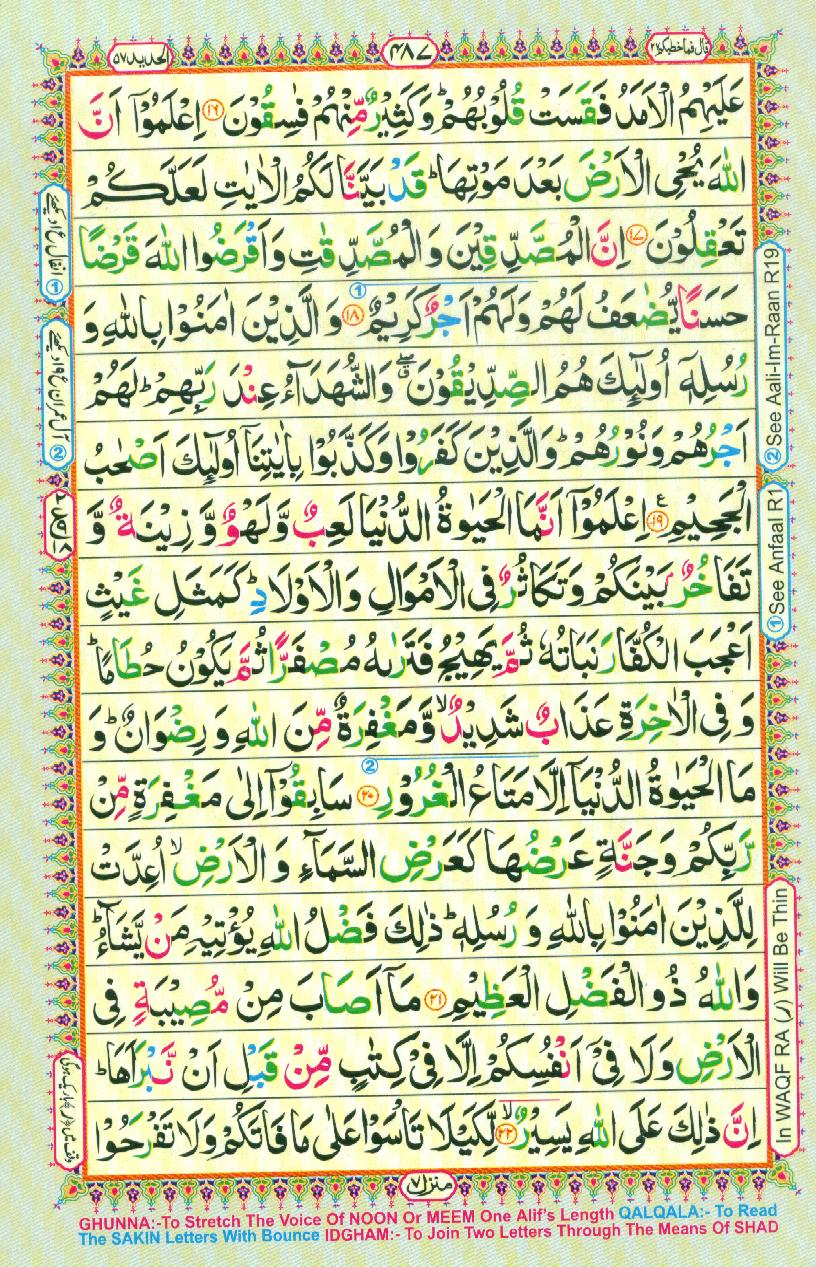 قال فما خطبكم ٢٧
٤٨٧
الحديد ٥٧
عَلَيْهِمُ الْاَمَدُ فَقَسَتْ قُلُوْبُهُمْ ؕ وَكَثِيْرٌ مِّنْهُمْ فٰسِقُوْنَ ﴿۱۶﴾ اِعْلَمُوْۤا اَنَّ
اللّٰهَ يُحْيِ الْاَرْضَ بَعْدَ مَوْتِهَا ؕ قَدْ بَيَّنَّا لَكُمُ الْاٰيٰتِ لَعَلَّكُمْ
تَعْقِلُوْنَ ﴿۱۷﴾ اِنَّ الْمُصَّدِّقِيْنَ وَ الْمُصَّدِّقٰتِ وَاَقْرَضُوا اللّٰهَ قَرْضًا
حَسَنًا يُّضٰعَفُ لَهُمْ وَلَهُمْ اَجْرٌ كَرِيْمٌ ① ﴿۱۸﴾ وَ الَّذِيْنَ اٰمَنُوْا بِاللّٰهِ وَ
رُسُلِهٖۤ اُولٰٓئِكَ هُمُ الصِّدِّيْقُوْنَ ۖۗ وَالشُّهَدَآءُ عِنْدَ رَبِّهِمْ ؕ لَهُمْ
اَجْرُهُمْ وَنُوْرُهُمْ ؕ وَالَّذِيْنَ كَفَرُوْا وَكَذَّبُوْا بِاٰيٰتِنَاۤ اُولٰٓئِكَ اَصْحٰبُ
الْجَحِيْمِ ﴿۱۹﴾ ع اِعْلَمُوْۤا اَنَّمَا الْحَيٰوةُ الدُّنْيَا لَعِبٌ وَّلَهْوٌ وَّ زِيْنَةٌ وَّ
تَفَاخُرٌۢ بَيْنَكُمْ وَتَكَاثُرٌ فِى الْاَمْوَالِ وَالْاَوْلَادِ ؕ كَمَثَلِ غَيْثٍ
اَعْجَبَ الْكُفَّارَ نَبَاتُهٗ ثُمَّ يَهِيْجُ فَتَرٰىهُ مُصْفَرًّا ثُمَّ يَكُوْنُ حُطَامًا ؕ
وَ فِى الْاٰخِرَةِ عَذَابٌ شَدِيْدٌ ۙ وَّمَغْفِرَةٌ مِّنَ اللّٰهِ وَ رِضْوَانٌ ؕ وَ
مَا الْحَيٰوةُ الدُّنْيَاۤ اِلَّا مَتَاعُ الْغُرُوْرِ ② ﴿۲۰﴾ سَابِقُوْۤا اِلٰى مَغْفِرَةٍ مِّنْ
رَّبِّكُمْ وَجَنَّةٍ عَرْضُهَا كَعَرْضِ السَّمَآءِ وَ الْاَرْضِ ۙ اُعِدَّتْ
لِلَّذِيْنَ اٰمَنُوْا بِاللّٰهِ وَ رُسُلِهٖ ؕ ذٰلِكَ فَضْلُ اللّٰهِ يُؤْتِيْهِ مَنْ يَّشَآءُ ؕ
وَاللّٰهُ ذُو الْفَضْلِ الْعَظِيْمِ ﴿۲۱﴾ مَاۤ اَصَابَ مِنْ مُّصِيْبَةٍ فِى
الْاَرْضِ وَلَا فِىْۤ اَنْفُسِكُمْ اِلَّا فِىْ كِتٰبٍ مِّنْ قَبْلِ اَنْ نَّبْرَاَهَا ؕ
اِنَّ ذٰلِكَ عَلَى اللّٰهِ يَسِيْرٌ ۙ ﴿۲۲﴾ لِّكَيْلَا تَاْسَوْا عَلٰى مَا فَاتَكُمْ وَلَا تَفْرَحُوْا
② See Aali-Im-Raan R19
① See Anfaal R1
In WAQF RA (ر) Will Be Thin
① انفال ع۱ دیکھئے
② آل عمران ع۱۹ دیکھئے
منزل ٧
GHUNNA:-To Stretch The Voice Of NOON Or MEEM One Alif's Length QALQALA:- To Read
The SAKIN Letters With Bounce IDGHAM:- To Join Two Letters Through The Means Of SHAD